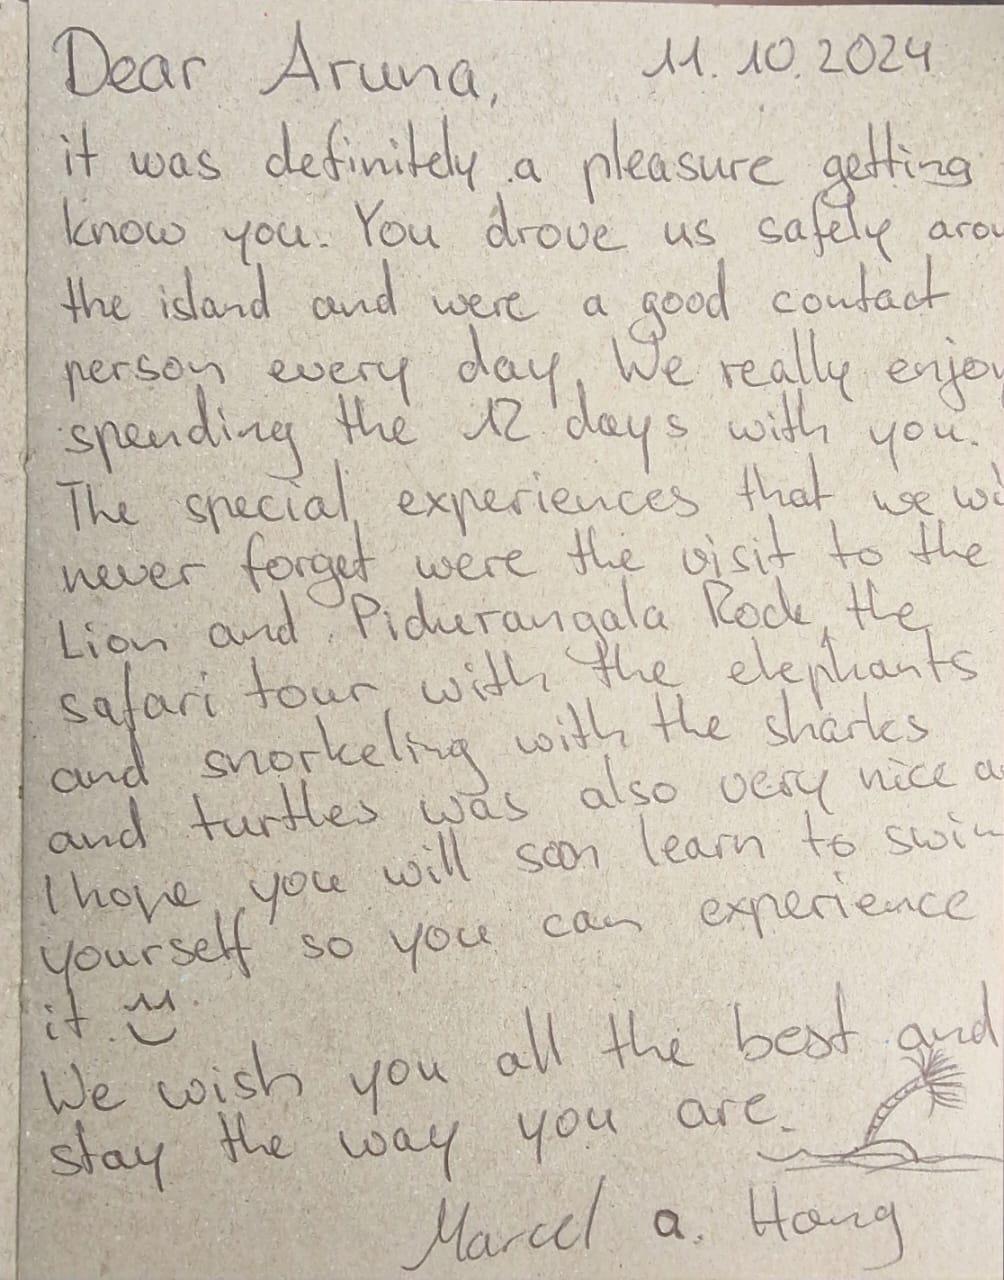 Dear Aruna, 11.10.2024
it was definitely a pleasure getting
know you. You drove us safely arou
the island and were a good contact
person every day. We really enjoy
spending the 12 days with you.
The special experiences that we wi
never forget were the visit to the
Lion and Pidurangala Rock, the
safari tour with the elephants
and snorkeling with the sharks
and turtles was also very nice a
I hope you will soon learn to swim
yourself so you can experience
it.
We wish you all the best and
stay the way you are.
Marcel a. Hang